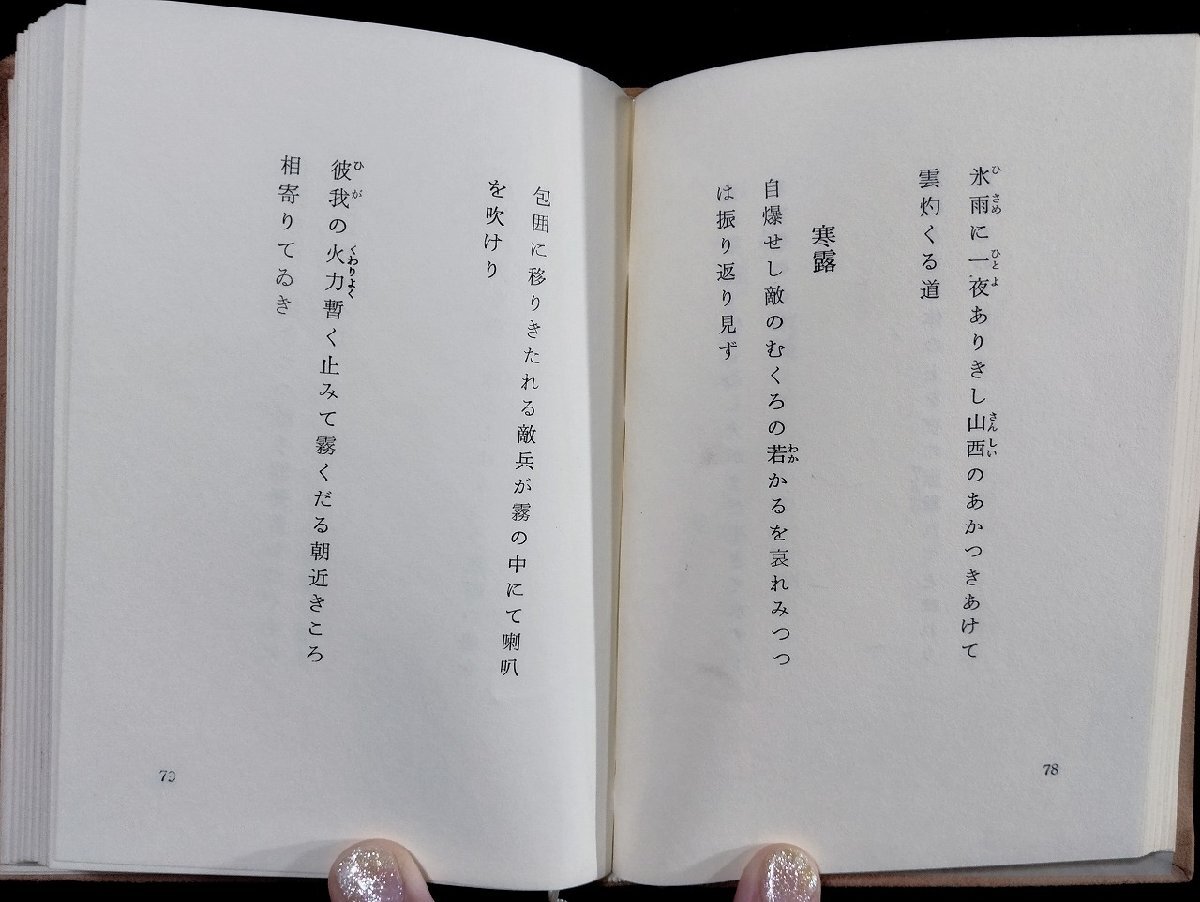 氷雨に一夜ありきし山西のあかつきあけて
雲灼くる道
寒露
自爆せし敵のむくろの若かるを哀れみつつ
は振り返り見ず
78
包囲に移りきたれる敵兵が霧の中にて喇叭
を吹けり
彼我の火力暫く止みて霧くだる朝近きころ
相寄りてゐき
79